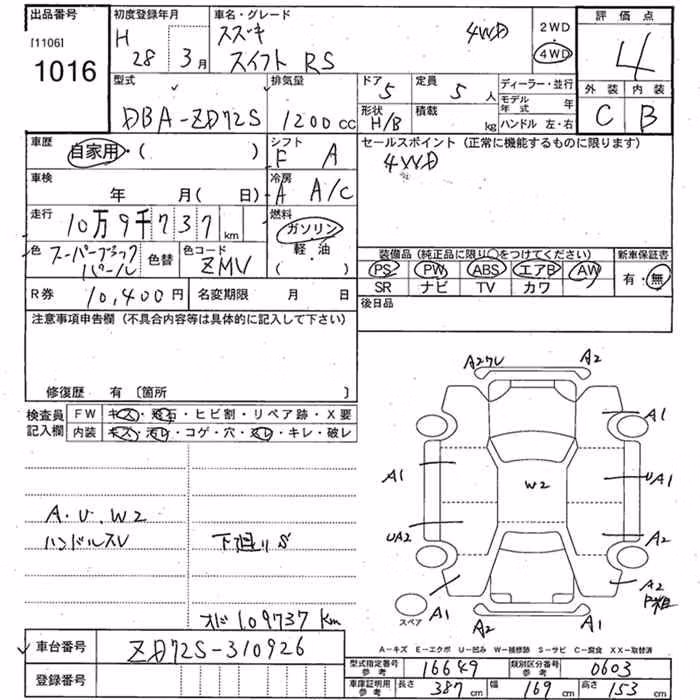 出品番号 初度登録年月 車名・グレード 評価点
[1106] H スズキ 4WD 2WD 4
1016 28 3月 スイフト RS 4WD 外装 内装
C B
型式 排気量 ドア 定員 ディーラー・並行
DBA-ZD72S 1200cc 5 5人 モデル年式 年
形状 積載 ハンドル 左・右
H/B kg
車歴 自家用・( ) シフト セールスポイント (正常に機能するものに限ります)
F A 4WD
車検 年 月( 日) 冷房
A A/C
走行 10万9千737km 燃料
ガソリン
軽・油
( )
色 スーパーブラックパール 色替 色コード ZMV
装備品(純正品に限り○をつけてください) 新車保証書
PS PW ABS エアB AW 有・無
SR ナビ TV カワ
R券 10,400円 名変期限 月 日 後日品
注意事項申告欄(不具合内容等は具体的に記入して下さい)
修復歴 有 〔箇所 〕
検査員記入欄 FW キズ・飛石・ヒビ割・リペア跡・X要
内装 キズ・汚レ・コゲ・穴・スレ・キレ・破レ
A.U.W2
ハンドルスレ 下廻りS
オド109737km
A2ワレ A2
A1
A1 W2 UA1
UA2 A2
A2
スペア A1 A2 A1
A-キズ E-エクボ U-凹み W-補修跡 S-サビ C-腐食 XX-取替済
車台番号 ZD72S-310926
登録番号
型式指定番号 参考 16649 類別区分番号 参考 0603
車庫証明用 参考 長さ 387cm 幅 169cm 高さ 153cm